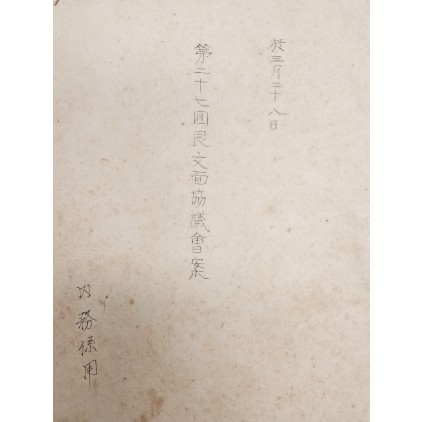 於三月二十八日
第二十七回艮文面協議會案
内務係用